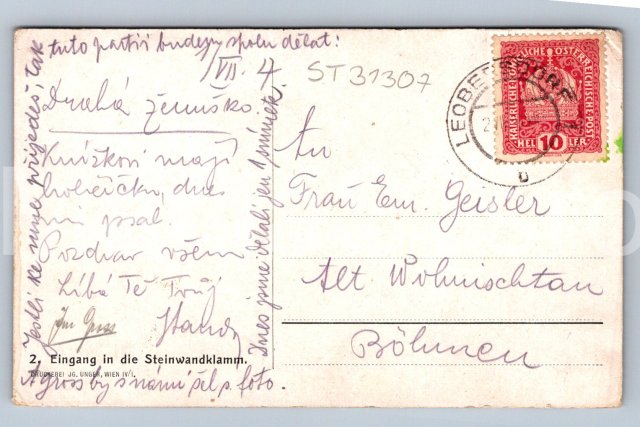 Jestli ke mne přijedeš, tak
tuto partii budem spolu dělat:
/VII. 4.
ST 31307
Drahá ženuško.
Knížkovi mají
holčičku, dnes
mi psal.
Pozdrav všem
Líbá Tě Tvůj
Standa
Dnes jsme dělali jen 1 snímek.
2. Eingang in die Steinwandklamm.
DRUCKEREI JG. UNGER, WIEN IV/1.
A Gross by s námi šel s foto.
An
Frau Em. Geisler
Alt. Wohnischtan
Böhmen
KAISERLICHE KÖNIGLICHE ÖSTERREICHISCHE POST
HELLER
10
LEOBERSDORF